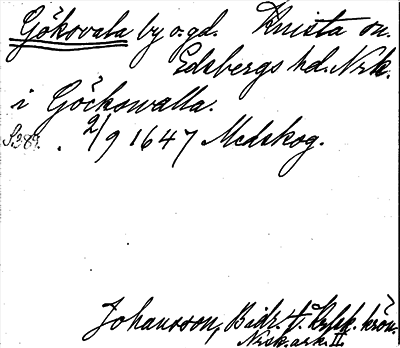 Gökovala by o. gd. Knista sn.
Edsbergs hd. Nrk.
i Göckowalla.
S 389. 2/9 1647 Medskog.
Johansson, Bidr. t. krön.
Nrsk. ark. II.